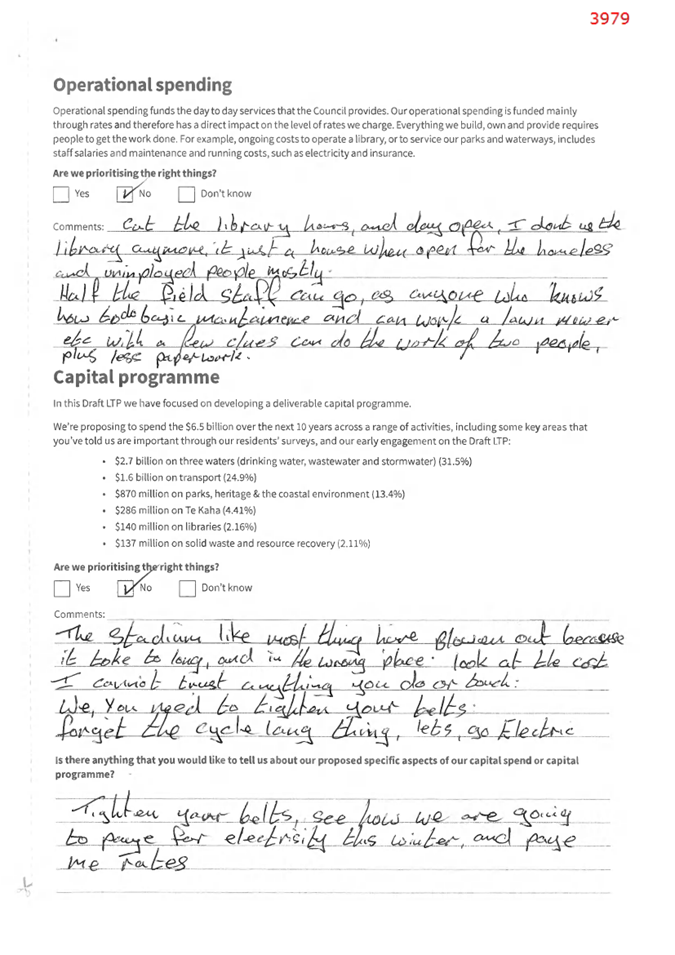 3979
Operational spending
Operational spending funds the day to day services that the Council provides. Our operational spending is funded mainly
through rates and therefore has a direct impact on the level of rates we charge. Everything we build, own and provide requires
people to get the work done. For example, ongoing costs to operate a library, or to service our parks and waterways, includes
staff salaries and maintenance and running costs, such as electricity and insurance.
Are we prioritising the right things?
Yes No Don't know
Comments: Cut the library hours, and day open, I dont us the
library anymore, it just a house when open for the homeless
and unimployed people mostly.
Half the field staff can go, as anyone who knows
how to do basic maintainence and can work a lawn mower
etc with a few clues can do the work of two people,
plus less paperwork.
Capital programme
In this Draft LTP we have focused on developing a deliverable capital programme.
We're proposing to spend the $6.5 billion over the next 10 years across a range of activities, including some key areas that
you've told us are important through our residents' surveys, and our early engagement on the Draft LTP:
• $2.7 billion on three waters (drinking water, wastewater and stormwater) (31.5%)
• $1.6 billion on transport (24.9%)
• $870 million on parks, heritage & the coastal environment (13.4%)
• $286 million on Te Kaha (4.41%)
• $140 million on libraries (2.16%)
• $137 million on solid waste and resource recovery (2.11%)
Are we prioritising the right things?
Yes No Don't know
Comments:
The Stadium like most thing have Blowen out because
it toke to long, and in the wrong place. look at the cost
I cannot trust anything you do or touch.
We, You need to tighten your belts.
forget the cycle lang thing, lets, go Electric
Is there anything that you would like to tell us about our proposed specific aspects of our capital spend or capital
programme?
Tighten your belts, see how we are going
to paye for electrisity this winter, and paye
me rates